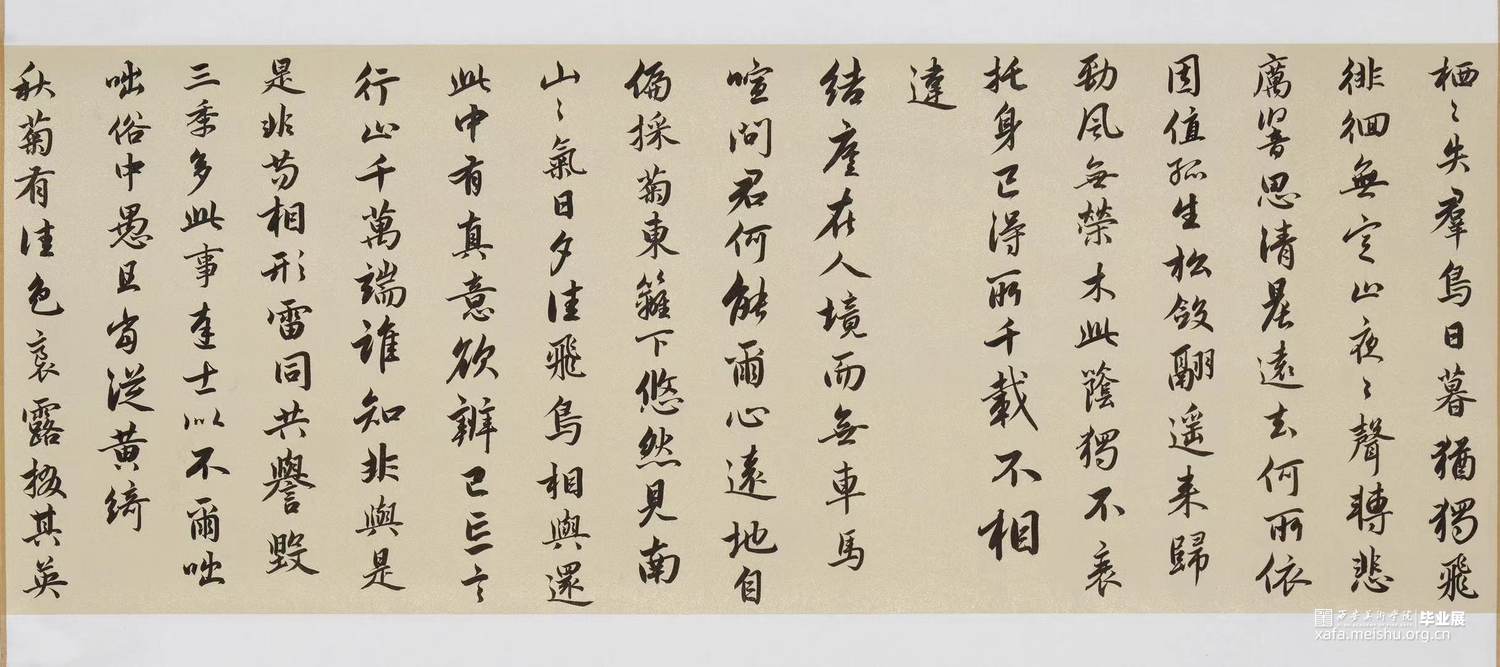 栖〻失羣鳥日暮猶獨飛
徘徊無定止夜〻聲轉悲
厲響思清晨遠去何所依
因值孤生松斂翮遥来歸
勁風無榮木此蔭獨不衰
托身已得所千載不相
違
結廬在人境而無車馬
喧問君何能爾心遠地自
偏採菊東籬下悠然見南
山〻氣日夕佳飛鳥相與還
此中有真意欲辨已忘言
行止千萬端誰知非與是
是非苟相形雷同共譽毀
三季多此事達士似不爾咄
咄俗中愚且當從黄綺
秋菊有佳色裛露掇其英
西安美术学院 毕业展
xafa.meishu.org.cn